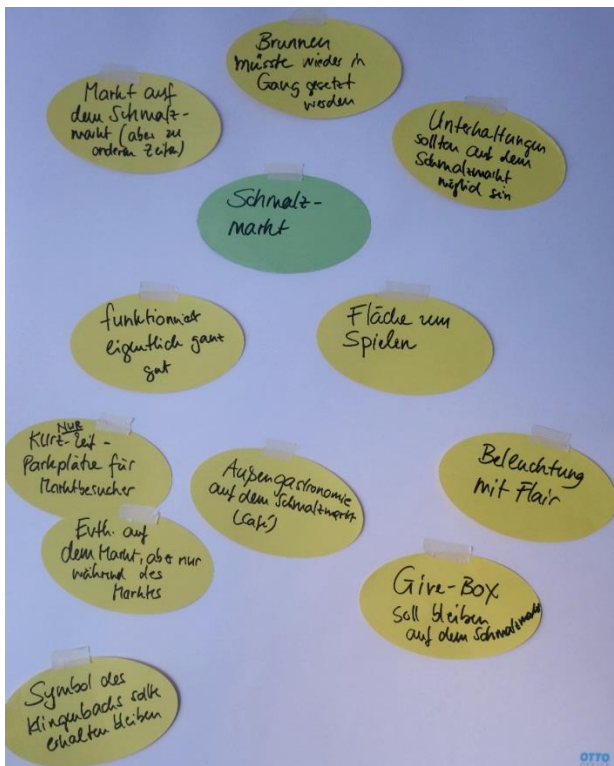 Brunnen
müsste wieder in
Gang gesetzt
werden
Markt auf
dem Schmalz-
markt (aber zu
anderen Zeiten)
Unterhaltungen
sollten auf dem
Schmalzmarkt
möglich sein
Schmalz-
markt
funktioniert
eigentlich ganz
gut
Fläche zum
Spielen
NUR
Kurz-Zeit-
Parkplätze für
Marktbesucher
Außengastronomie
auf dem Schmalzmarkt
(Café)
Beleuchtung
mit Flair
Evtl. auf
dem Markt, aber nur
während des
Marktes
Give-Box
soll bleiben
auf dem Schmalzmarkt
Symbol des
Klingenbachs sollte
erhalten bleiben
OTTO